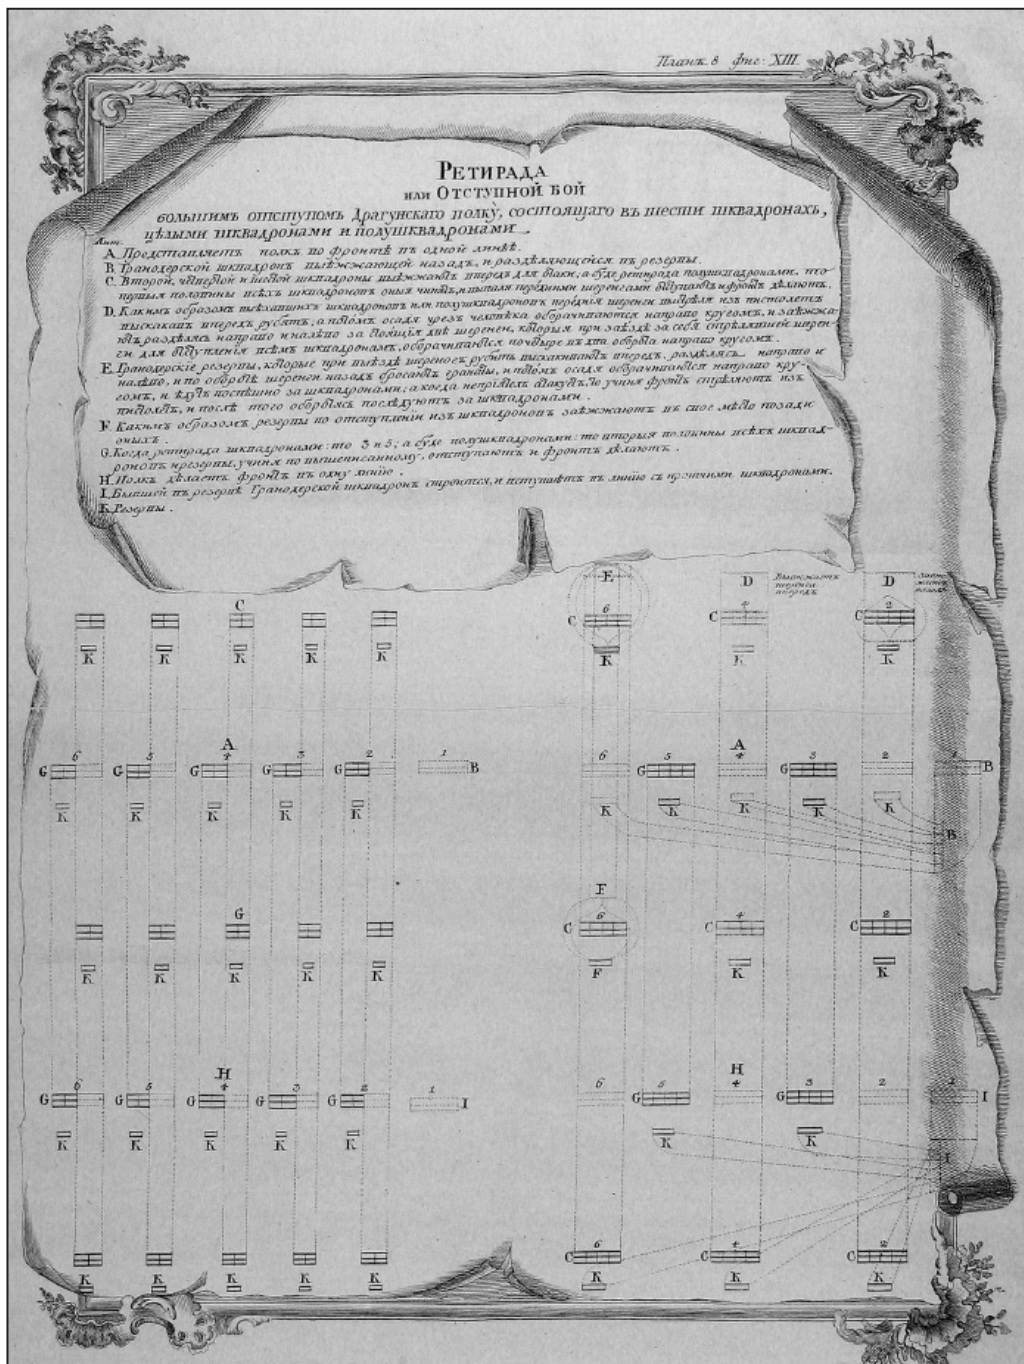 Планъ 8 Фиг: XIII.
РЕТИРАДА
или ОТСТУПНОЙ БОЙ
большимъ отступомъ Драгунскаго полку, состоящаго въ шести шквадронахъ,
цѣлыми шквадронами и полушквадронами.
Лит.
A. Представляетъ полкъ во фронтѣ въ одной линѣѣ.
B. Гранодерской шквадронъ выѣзжающей назадъ, и раздѣляющейся въ резервы.
C. Второй, четвертой и шестой шквадроны выѣзжаютъ впередъ для атаки; а буде ретирада полушквадронами, то
первыя половины всѣхъ шквадроновъ оныя чинятъ, и выпаля передними шеренгами выступаютъ и фронтъ дѣлаютъ.
D. Какимъ образомъ выѣхавшихъ шквадроновъ или полушквадроновъ передния шеренги выстрѣля изъ пистолетъ
выскакавъ впередъ рубятъ; а потомъ осадя чрезъ человѣка оборачиваются направо кругомъ, и заѣзжа-
ютъ раздѣлясь направо и налѣво за стоящія двѣ шеренги, которыя при заѣздѣ за себя стрѣлявшей шерен-
ги для выступления всѣмъ шквадронамъ, оборачиваются по чтыре въ два оборота направо кругомъ.
E. Гранодерскіе резервы, которые при выѣздѣ шеренов рубить выскакиваютъ впередъ, раздѣлясь направо и
налѣво, и по оборотѣ шеренги назадъ бросаютъ гранаты, и потомъ осадя оборачиваются направо кру-
гомъ, и ѣдутъ поспѣшно за шквадронами; а когда неприятель атакуетъ, то учиня фронтъ стрѣляютъ изъ
пистолетъ, и послѣ того оборотясь послѣдуютъ за шквадронами.
F. Какимъ образомъ резервы по отступлении изъ шквадроновъ заѣзжаютъ въ свое мѣсто позади
оныхъ.
G. Когда ретирада шквадронами: то 3 и 5; а буде полушквадронами: то вторыя половины всѣхъ шквад-
роновъ и резервы, учиня по вышеписанному, отступаютъ и фронтъ дѣлаютъ.
H. Полкъ дѣлаетъ фронтъ въ одну линию.
I. Бывшей въ резервѣ Гранодерской шквадронъ строится, и вступаетъ въ линию съ протчими шквадронами.
K. Резервы.
C E D Выезжаетъ шеренга впередъ D
C 6 C 4 C 2
K K K K K K K K
A A
G 6 G 5 G 4 G 3 G 2 1 B 6 G 5 4 G 3 2 1 B
K K K K K K K K K K
B
G F
C 6 C 4 C 2
K K K K K F K K
H H
G 6 G 5 G 4 G 3 G 2 1 I 6 G 5 4 G 3 2 1 I
K K K K K K K
I
C 6 C 4 C 2
K K K K K K K K